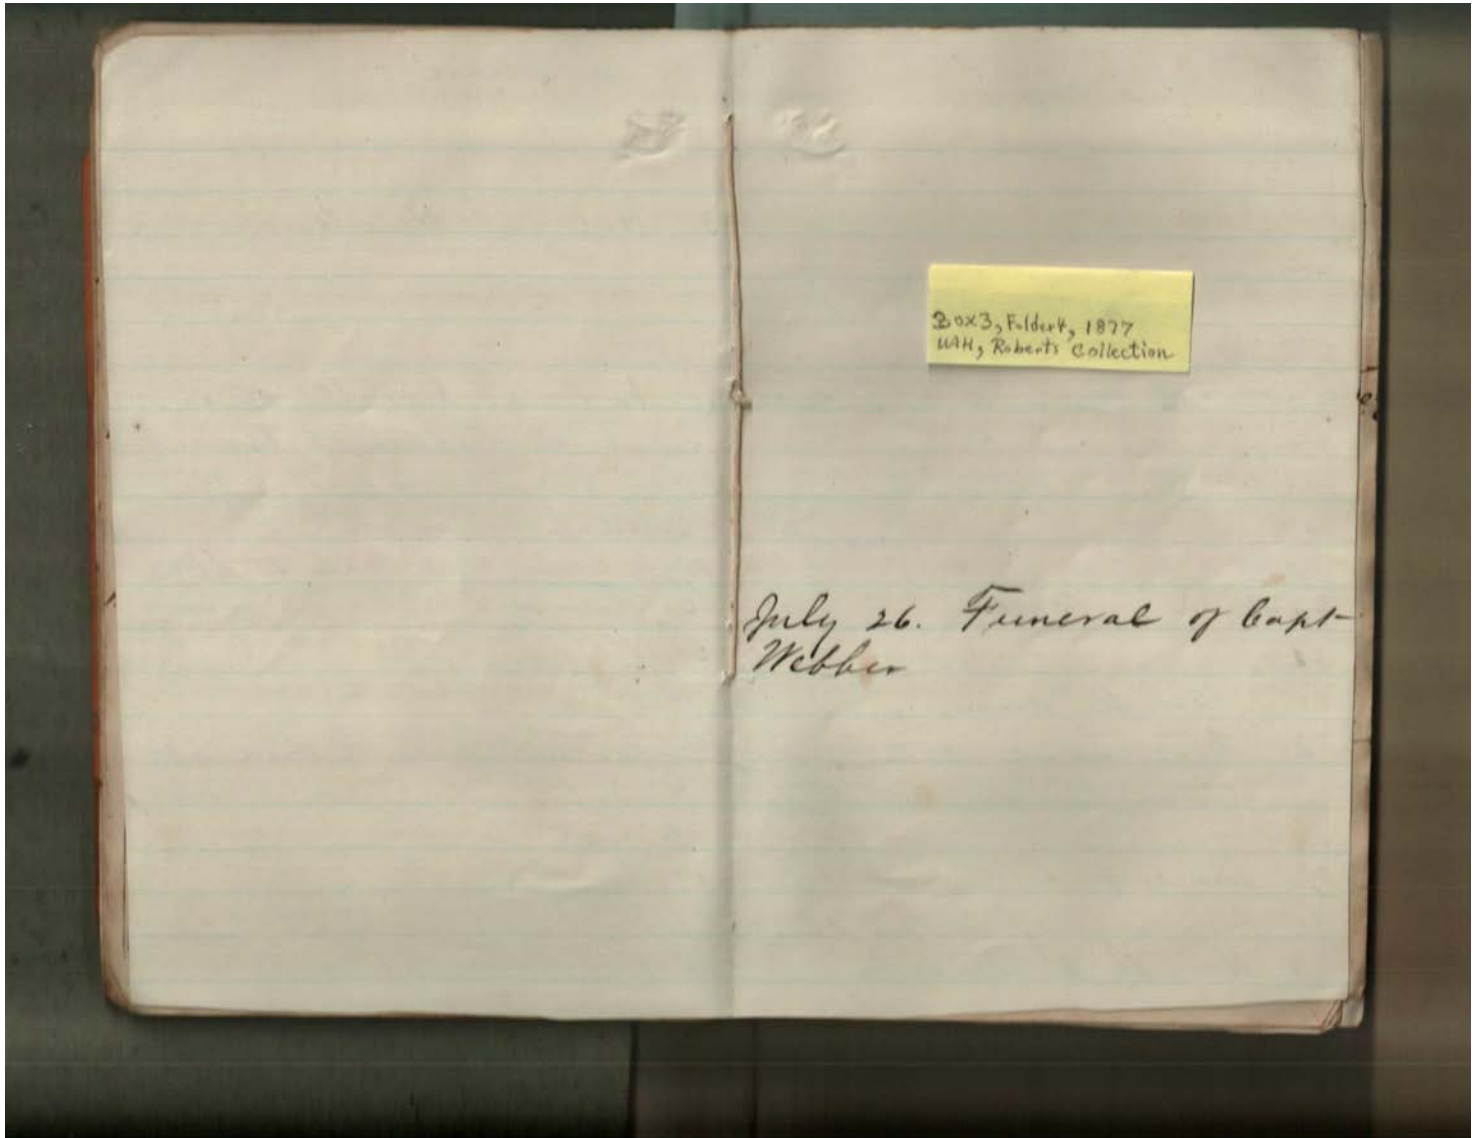 Box 3, Folder 4, 1877
UAH, Roberts Collection
July 26. Funeral of Capt
Webber